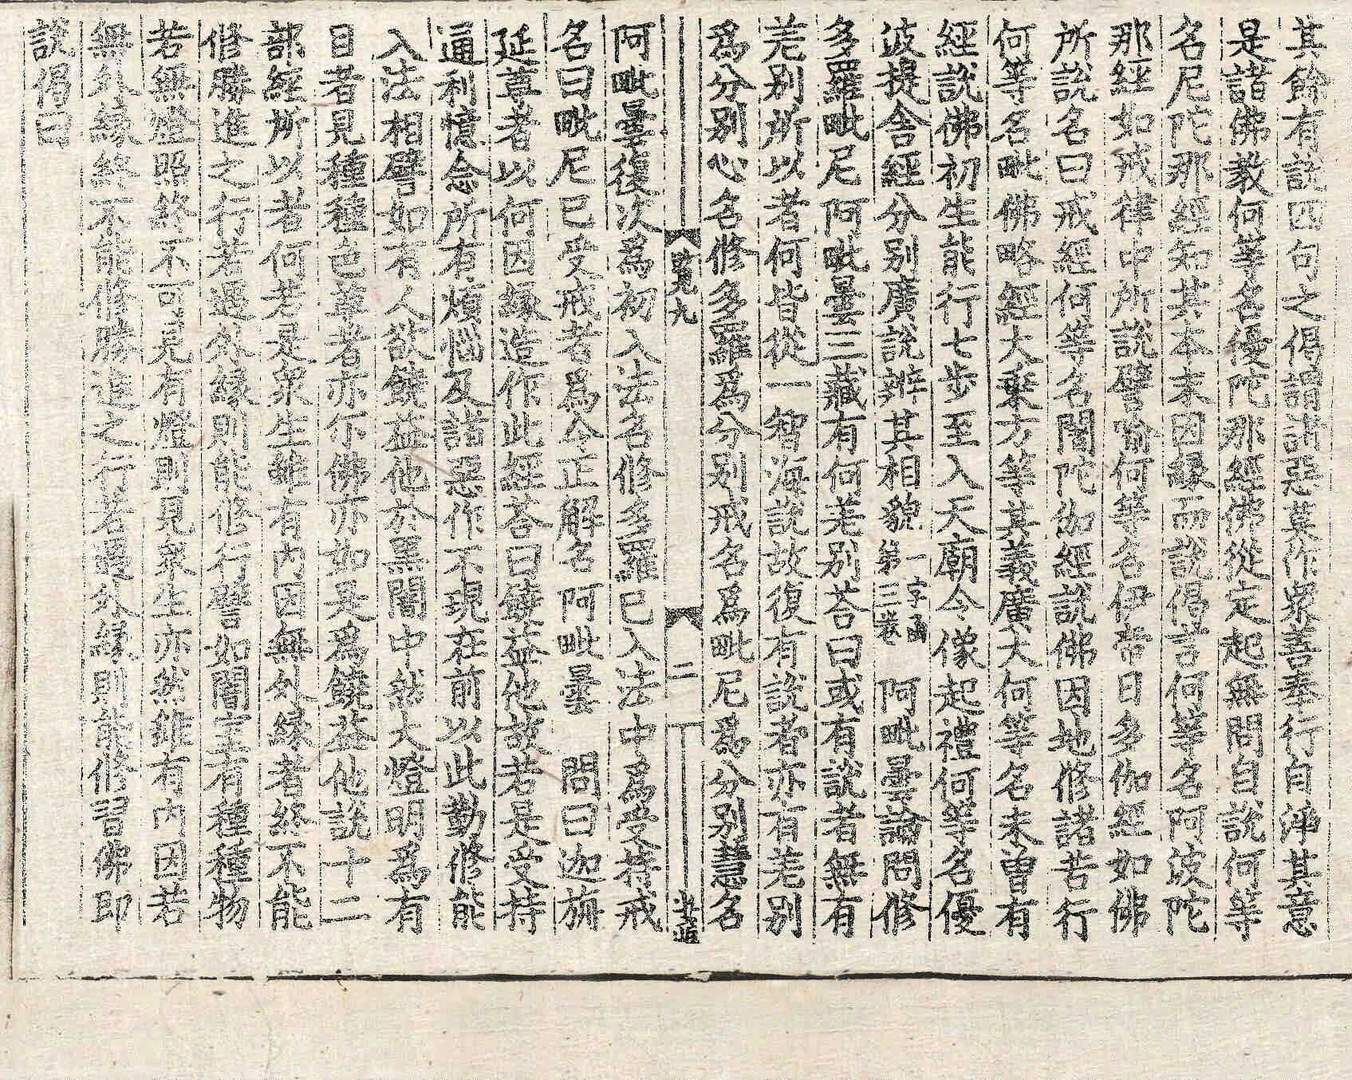 其餘有說四句之偈謂諸惡莫作眾善奉行自淨其意
是諸佛教何等名優陀那經佛從定起無問自說何等
名尼陀那經知其本末因緣而說偈言何等名阿波陀
那經如戒律中所說譬喻何等名伊帝曰多伽經如佛
所說名曰戒經何等名闍陀伽經說佛因地修諸苦行
何等名毗佛略經大乘方等其義廣大何等名未曾有
經說佛初生能行七步至入天廟令像起禮何等名優
波提舍經分別廣說辨其相貌 一字函 第三卷 阿毗曇論問修
多羅毗尼阿毗曇三藏有何差別荅曰或有說者無有
差別所以者何皆從一智海說故復有說者亦有差別
為分別心名修多羅為分別戒名為毗尼為分別慧名
覽九 二
阿毗曇復次為初入法名修多羅已入法中為受持戒
名曰毗尼已受戒者為令正解名阿毗曇 問曰迦旃
延尊者以何因緣造作此經荅曰饒益他故若是受持
通利憶念所有煩惱及諸惡作不現在前以此勤修能
入法相譬如有人欲饒益他於黑闇中然大燈明為有
目者見種種色尊者亦尓佛亦如是為饒益他說十二
部經所以者何若是眾生雖有內因無外緣者終不能
修勝進之行若遇外緣則能修行譬如闇室有種種物
若無燈照終不可見有燈則見眾生亦然雖有內因若
無外緣終不能修勝進之行若遇外緣則能修習佛即
說偈曰